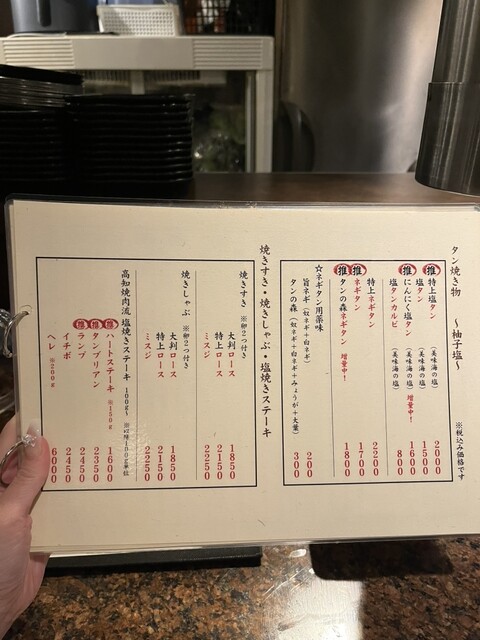 タン焼き物 ～柚子塩～ ※税込み価格です
推 特上塩タン (美味海の塩) 2000
塩タン (美味海の塩) 1500
推 にんにく塩タン 増量中! 1600
塩タンカルビ (美味海の塩) 800
特上ネギタン 2200
推 ネギタン 1700
推 タンの森ネギタン 増量中! 1800
☆ネギタン用薬味
旨ネギ (奴ネギ+白ネギ) 200
タンの森 (奴ネギ+白ネギ+みょうが+大葉) 300
焼きすき・焼きしゃぶ・塩焼きステーキ
焼きすき ※卵2つ付き
大判ロース 1850
特上ロース 2150
ミスジ 2250
焼きしゃぶ ※卵2つ付き
大判ロース 1850
特上ロース 2150
ミスジ 2250
高知焼肉流 塩焼きステーキ 100g～ ※以降100g単位
推 ハートステーキ ※150g 1600
推 タンブリアン 2350
推 ランプ 2450
イチボ 2450
ヘレ ※200g 6000